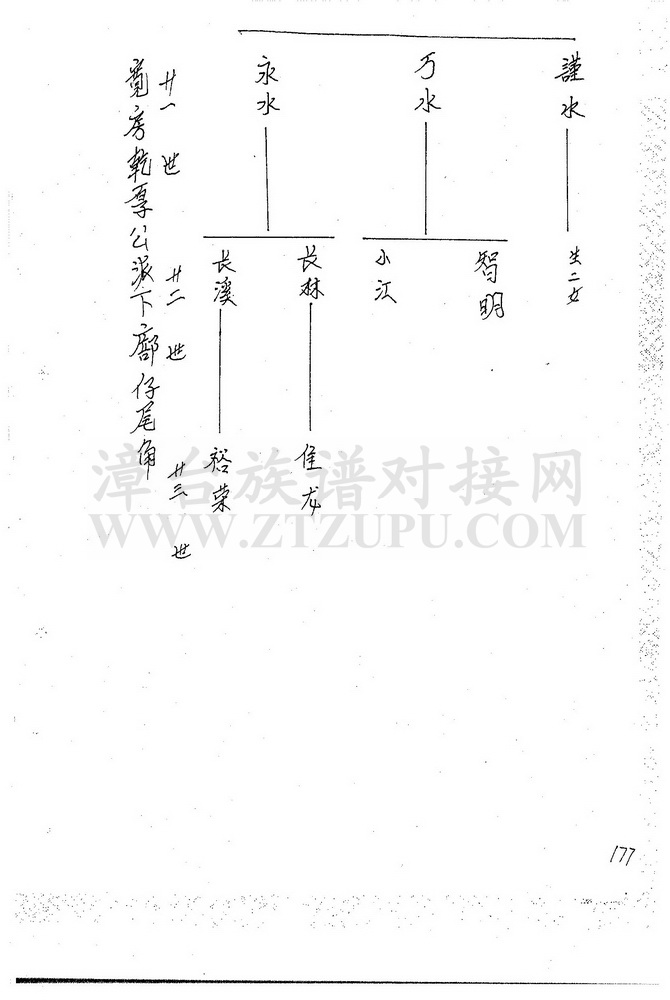 謹水
生二女
丂水
智明
小江
永水
长林
佳龙
长溪
裕荣
廿一世
廿二世
廿三世
寬房乾厚公派下廍仔尾角
漳台族谱对接网
WWW.ZTZUPU.COM
177